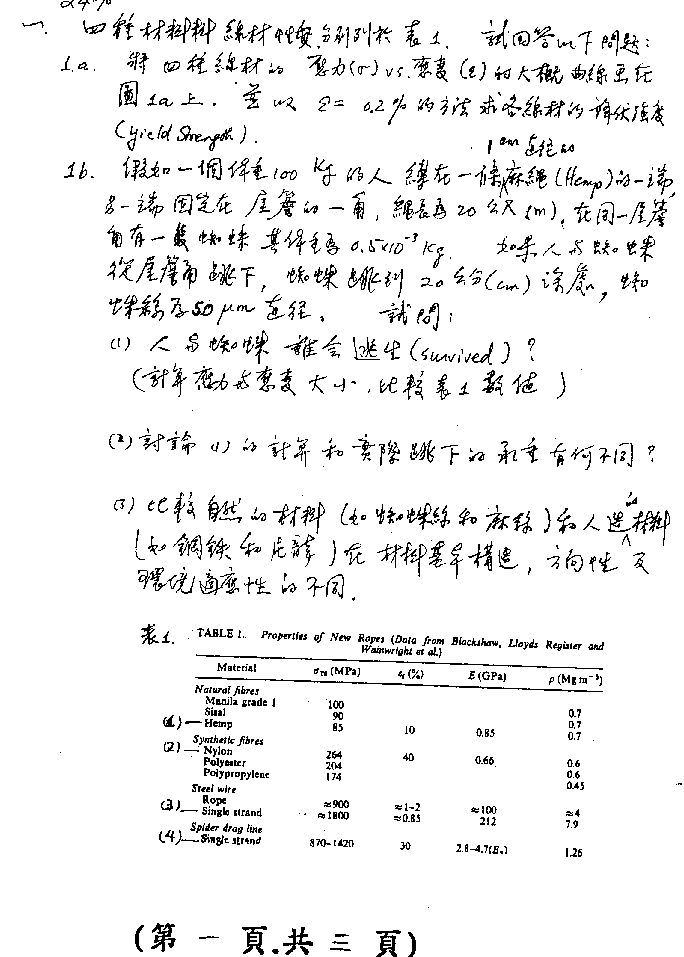 24%
一. 四種材料 線材性質分別列於表1. 試回答以下問題:
1.a. 將四種線材的 應力(σ) vs. 應變(ε)的大概曲線画在
圖1a上. 並以 ε= 0.2%的方法求各線材的降伏強度
(yield strength).
1 cm 直徑的
1b. 假如一個体重100 Kg的人 縛在一條麻繩(Hemp)的一端,
另一端固定在 屋簷的一角, 繩長為20公尺(m), 在同一屋簷
角有一隻蜘蛛 其体重為0.5x10⁻³ Kg. 如果人与蜘蛛
從屋簷角跳下, 蜘蛛跳到 20公分(cm)深處, 蜘
蛛絲為50 μm直徑. 試問:
(1) 人与蜘蛛 誰会逃生(survived)?
(計算應力与應變大小, 比較表1數值)
(2) 討論(1)的計算和實際跳下的承重有何不同?
(3) 比較自然的材料(如蜘蛛絲和麻絲)和人造的材料
(如鋼鐵和尼龍)在材料基本構造, 方向性及
環境適應性的不同.
表1. TABLE 1. Properties of New Ropes (Data from Blackshaw, Lloyds Register and
Wainwright et al.)
Material σTS (MPa) εf (%) E (GPa) ρ (Mg m⁻³)
Natural fibres
Manila grade 1 100 0.7
Sisal 90 0.7
(1)— Hemp 85 10 0.85 0.7
Synthetic fibres
(2)— Nylon 264 40 0.66 0.6
Polyester 204 0.6
Polypropylene 174 0.45
Steel wire
Rope ≈900 ≈1–2 ≈100 ≈4
(3)— Single strand ≈1800 ≈0.85 212 7.9
Spider drag line
(4)— Single strand 870–1420 30 2.8–4.7(E₀) 1.26
(第 一 頁.共 三 頁)